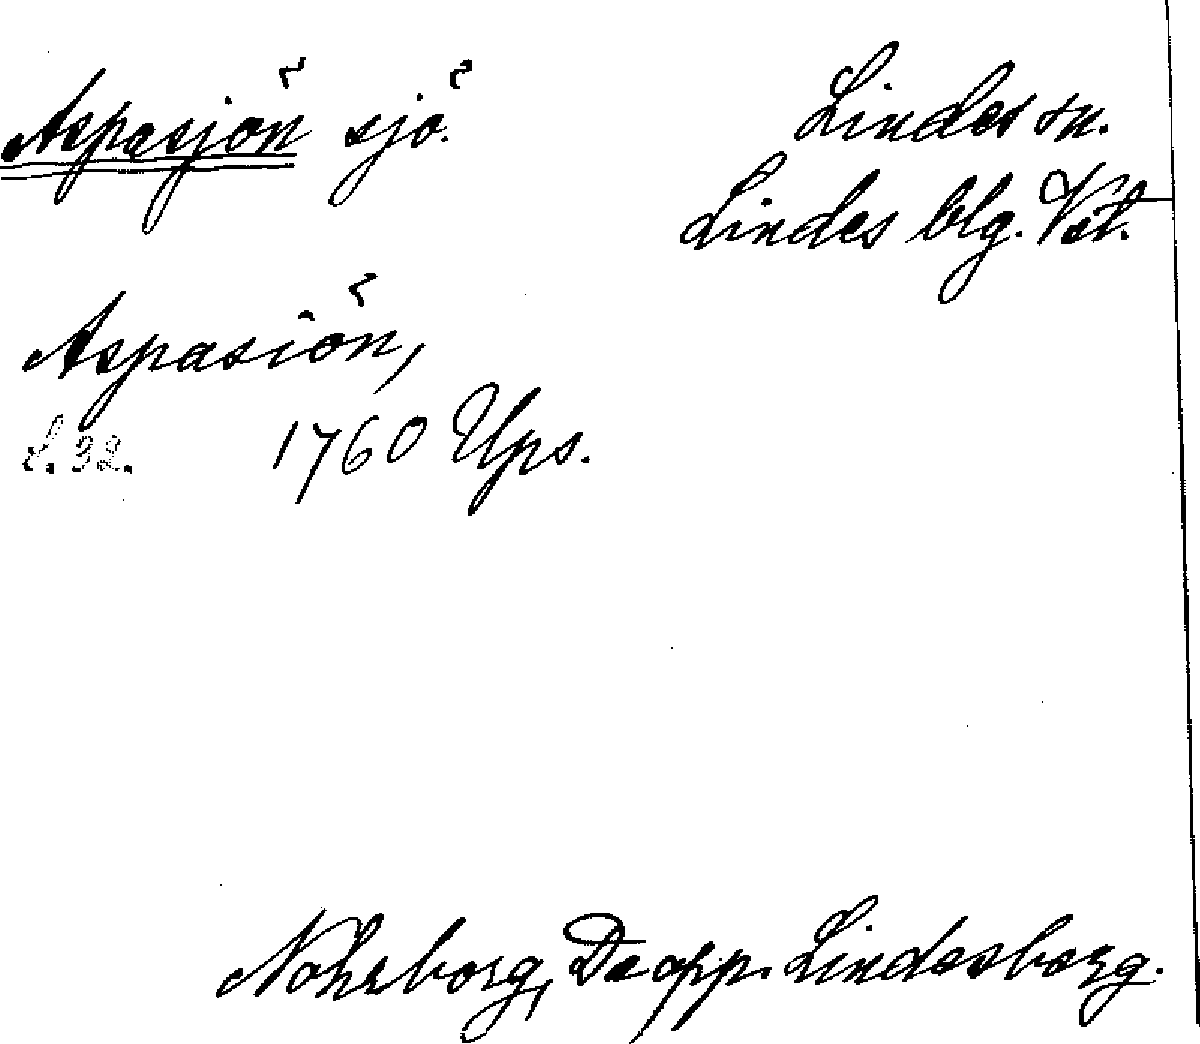 Aspasjön sjö.
Lindes sn.
Lindes blg. Vstm.
Aspasiön,
s. 32. 1760 Ups.
Nohrborg, De opp. Lindesborg.